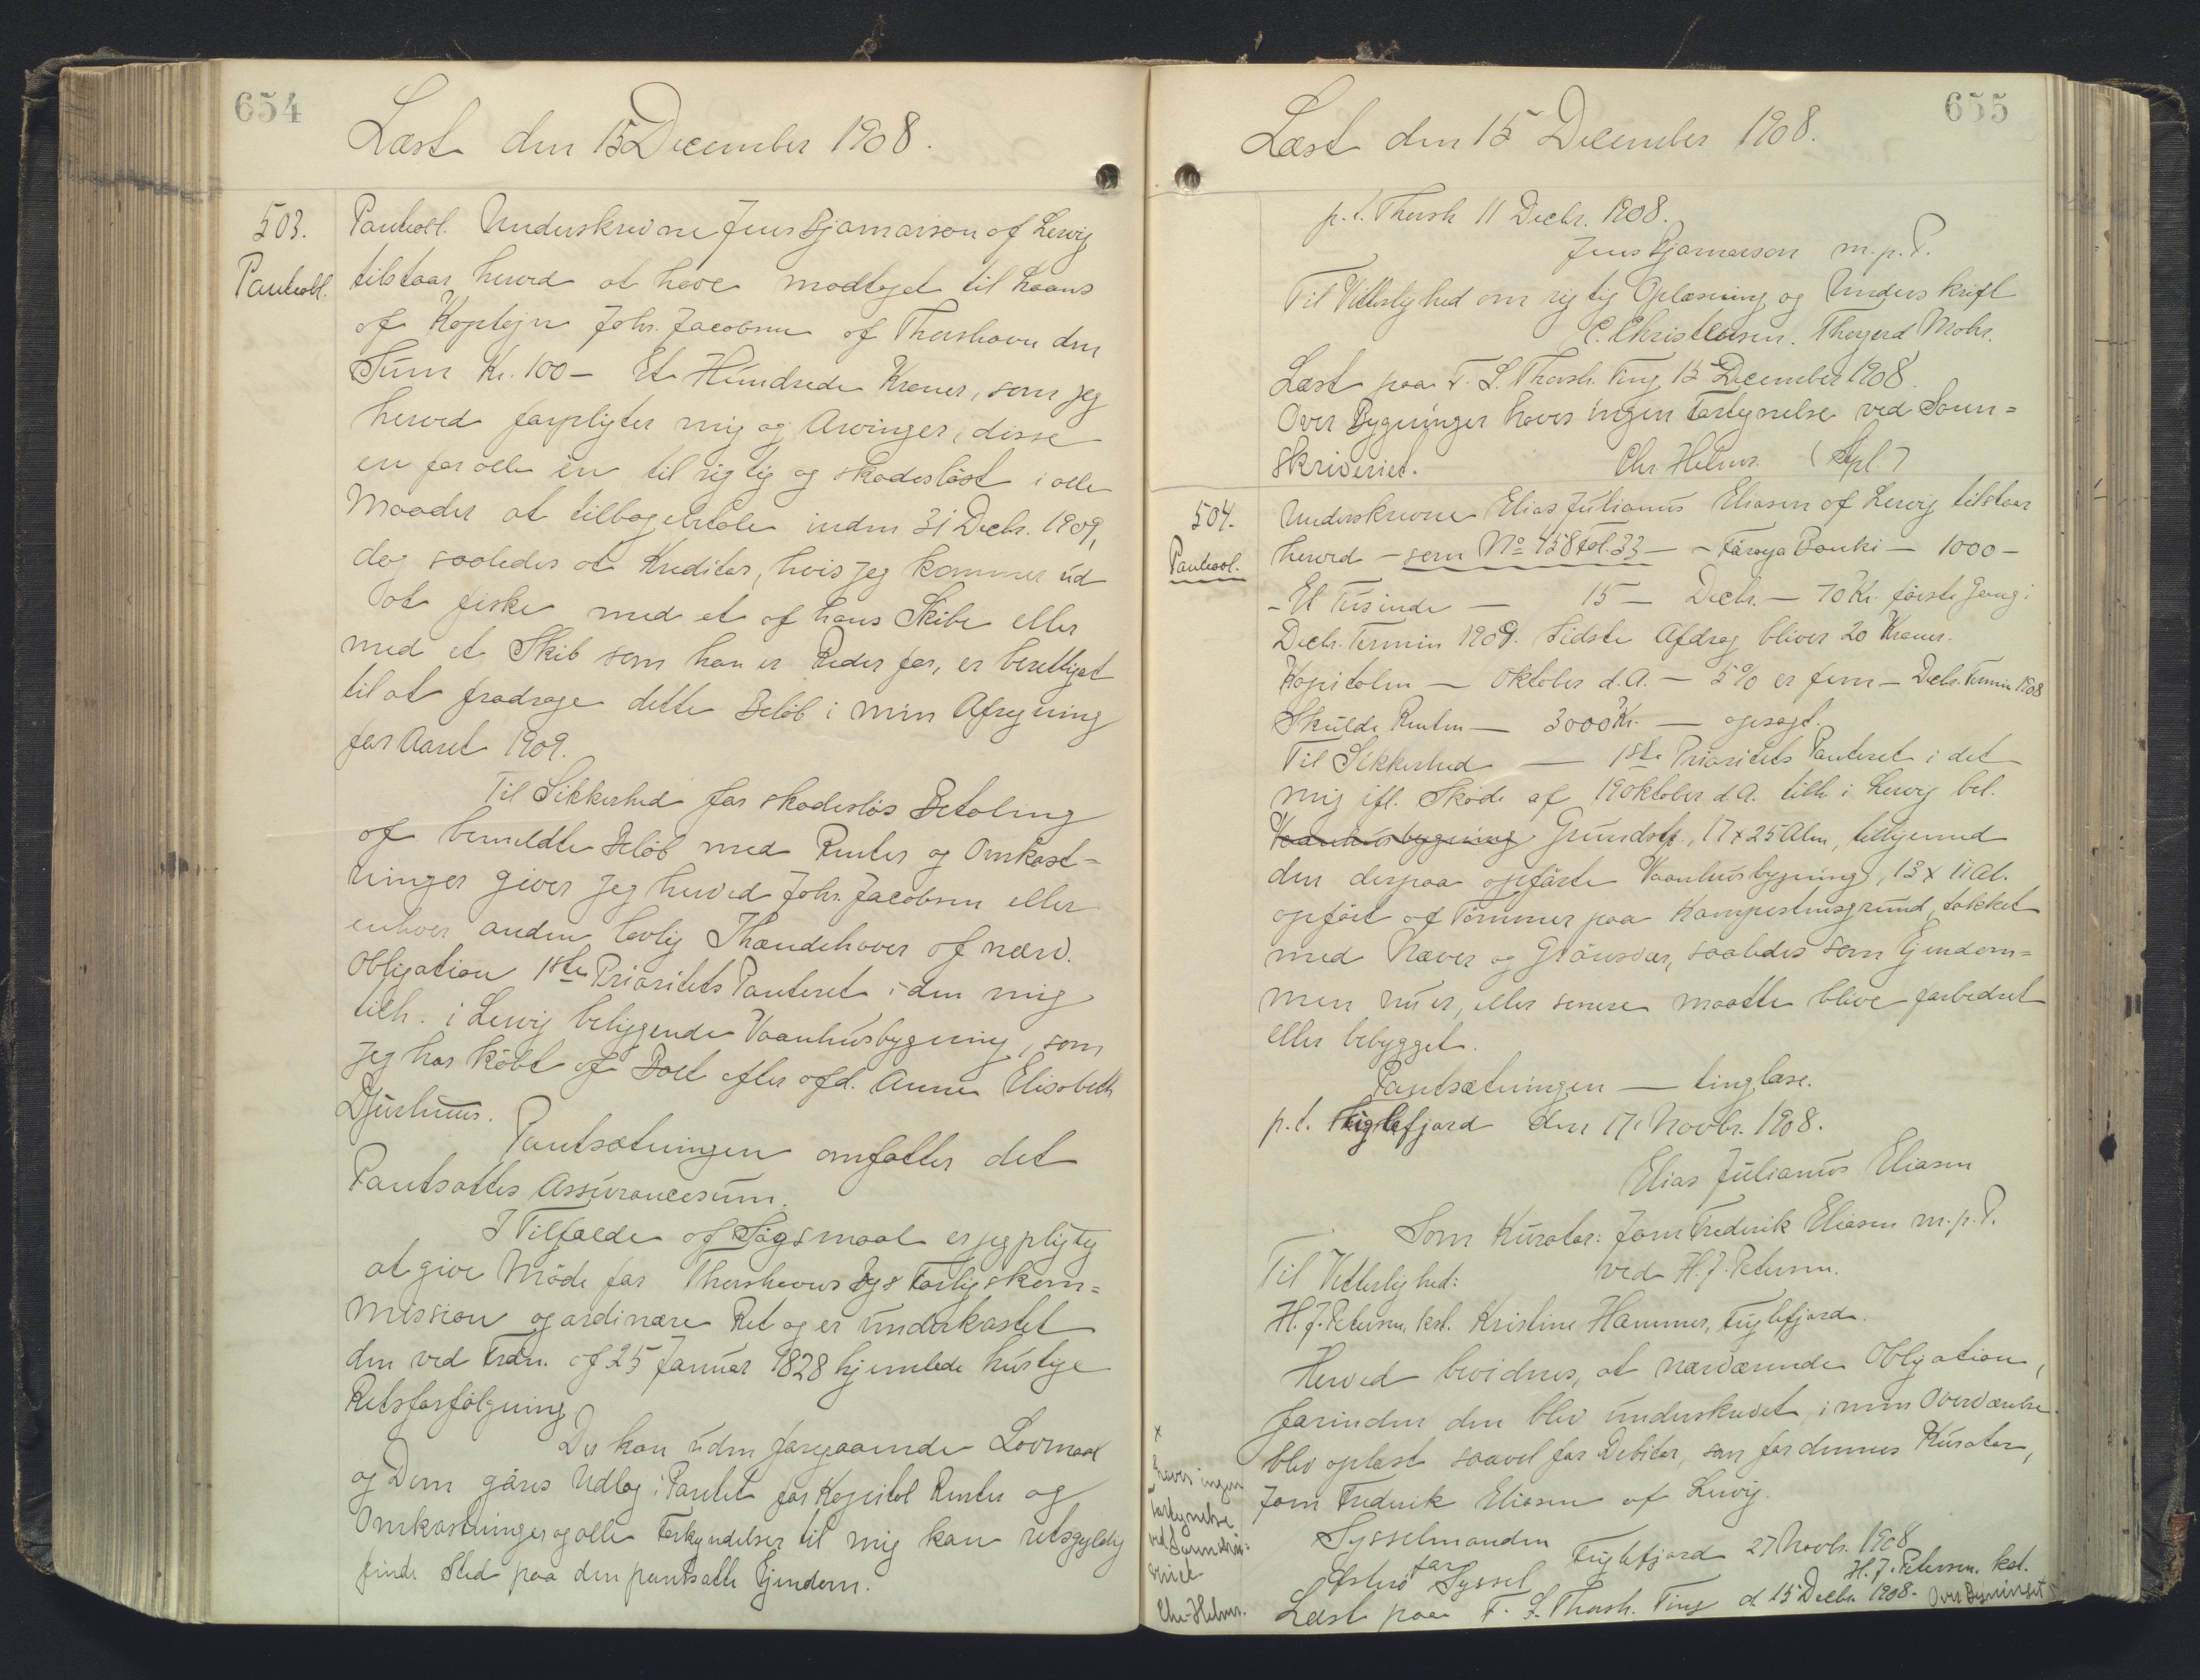 654
Læst den 15 December 1908.
503.
Panteobl.
Panteobl. Underskrevne Jens Bjarnarson af Lervig
tilstaar herved at have modtaget til Laans
af Kaptejn Johs. Jacobsen af Thorshavn den
Sum Kr. 100 - Et Hundrede Kroner, som jeg
herved forpligter mig og Arvinger, disse
en for alle en til rigtig og skadesløst i alle
Maader at tilbagebetale inden 31 Decbr. 1909,
dog saaledes at Kreditor, hvis jeg kommer ud
at fiske med et af hans Skibe eller
med et Skib som han er Reder for, er berettiget
til at fradrage dette Beløb i min Afregning
for Aaret 1909.
Til Sikkerhed for skadesløs Betaling
af bemeldte Beløb med Renter og Omkost=
ninger giver jeg herved Johs. Jacobsen eller
enhver anden lovlig Ihændehaver af nærv.
Obligation 1ste Prioritets Panteret i den mig
tilh. i Lervig beliggende Vaanhusbygning, som
jeg har købt af Boet efter afd. Anne Elisabeth
Djurhuus.
Pantsætningen omfatter det
Pantsattes Assurancesum.
I Tilfælde af Søgsmaal er jeg pligtig
at give Møde for Thorshavns Bys Forligskom=
mission og ordinære Ret og er underkastet
den ved Frdn. af 25 Januar 1828 hjemlede hurtige
Retsforfølgning
Der kan uden foregaaende Lovmaal
og Dom gøres Udlæg i Pantet for Kapital Renter og
Omkostninger og alle Forkyndelser til mig kan retsgyldig
finde Sted paa den pantsatte Ejendom.
655
Læst den 15 December 1908.
p. t. Thorsh 11 Decbr. 1908.
Jens Bjarnarson m. p. P.
Til Vitterlighed om rigtig Oplæsning og Underskrift
C. Christensen. Thorgerd Mohr.
Læst paa F. L. Thorsh. Ting 15 December 1908.
Over Bygninger haves ingen Fortegnelse ved Soren=
skriveriet. Chr. Helms. (Spl.)
504.
Panteobl.
Underskrevne Elias Julianus Eliasen af Lervig tilstaar
herved - som No 458 Fol. 33 - - Føroya Banki - 1000 -
- Et Tusinde - 15 - Decbr. - 70 Kr. første Gang i
Decbr. Termin 1909. Sidste Afdrag bliver 20 Kroner.
Kapitalen - Oktober d. A. - 5 % er fem - Decbr. Termin 1908
Skulde Renten - 3000 Kr. - opsagt.
Til Sikkerhed - 1ste Prioritets Panteret i det
mig ifl. Skøde af 19 Oktober d. A. tilh. i Lervig bel.
Vaanhusbygning Grundstk., 17 x 25 Alen, tilligemed
den derpaa opførte Vaanhusbygning, 13 x 11 Al.
opført af Tømmer paa Kampestensgrund, takket
med Næver og Grønsvær, saaledes som Ejendom=
men nu er, eller senere maatte blive forbedret
eller bebygget.
Pantsætningen - tinglæse.
p. t. Fuglefjord den 17. Novbr. 1908.
Elias Julianus Eliasen
Som Kurator: Joen Frederik Eliasen m. p. P.
ved H. J. Petersen.
Til Vitterlighed:
H. J. Petersen, kst. Kristine Hammer, Fuglefjord.
Herved bevidnes, at nærværende Obligation,
forinden den blev underskrevet, i min Overværelse
blev oplæst saavel for Debitor, som for dennes Kurator,
Joen Frederik Eliasen af Lervig.
Sysselmanden for Østerø Syssel Fuglefjord 27 Novbr. 1908
H. J. Petersen. kst.
Læst paa F. L. Thorsh. Ting d. 15 Decbr. 1908. Over Bygninger
x
haves ingen
Fortegnelse
ved Sorenskri=
veriet
Chr. Helms.